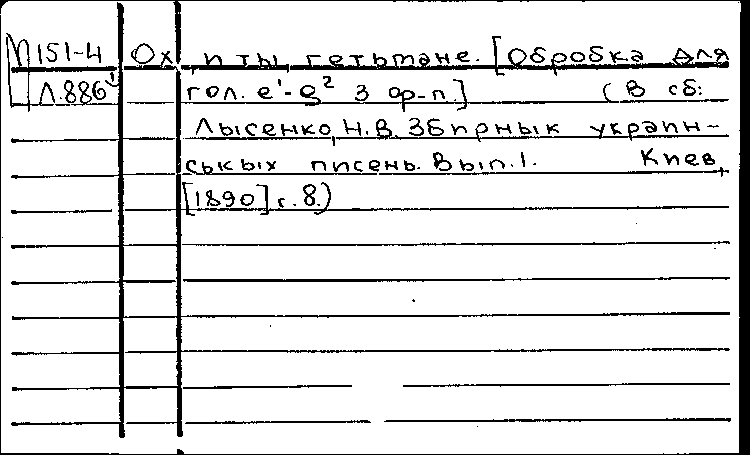 М151-4 Ох, п ты, гетьтане. [Обробка для
Л.886¹ гол. e¹-g² з ор-п.] (В сб:
Лысенко, Н.В. Збпрнык украпн-
ськых писень. Вып.1. Киев,
[1890] г. 8.)